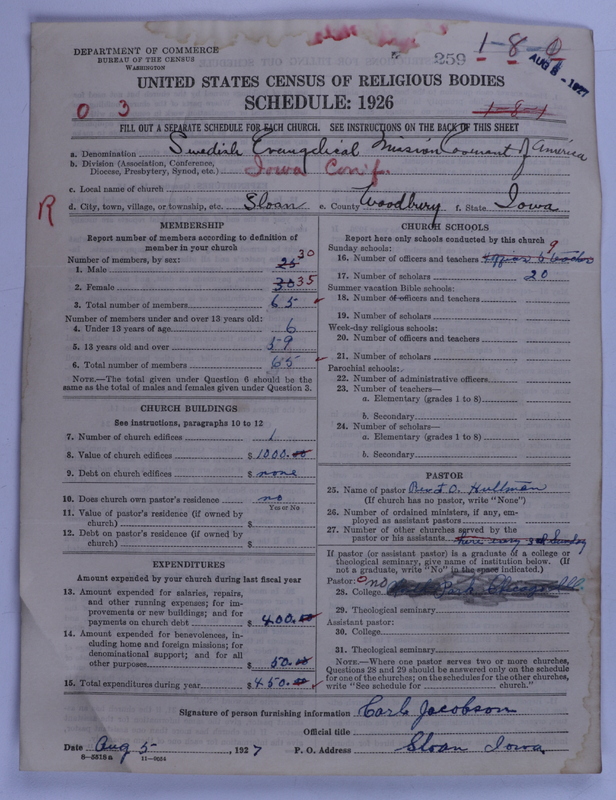 DEPARTMENT OF COMMERCE
BUREAU OF THE CENSUS
WASHINGTON
259
1-8-0
AUG 8 - 1927
UNITED STATES CENSUS OF RELIGIOUS BODIES
SCHEDULE: 1926
0 3
1-8-1
FILL OUT A SEPARATE SCHEDULE FOR EACH CHURCH. SEE INSTRUCTIONS ON THE BACK OF THIS SHEET
a. Denomination Swedish Evangelical Mission Covenant of America
b. Division (Association, Conference,
Diocese, Presbytery, Synod, etc.) Iowa Conf.
c. Local name of church
R
d. City, town, village, or township, etc. Sloan e. County Woodbury f. State Iowa
MEMBERSHIP
Report number of members according to definition of
member in your church
Number of members, by sex:
1. Male 25 30
2. Female 30 35
3. Total number of members 65
Number of members under and over 13 years old:
4. Under 13 years of age 6
5. 13 years old and over 59
6. Total number of members 65
NOTE.—The total given under Question 6 should be the
same as the total of males and females given under Question 3.
CHURCH BUILDINGS
See instructions, paragraphs 10 to 12
7. Number of church edifices 1
8. Value of church edifices $ 1000.00
9. Debt on church edifices $ none
10. Does church own pastor's residence no
Yes or No
11. Value of pastor's residence (if owned by
church) $
12. Debt on pastor's residence (if owned by
church) $
EXPENDITURES
Amount expended by your church during last fiscal year
13. Amount expended for salaries, repairs,
and other running expenses; for im-
provements or new buildings; and for
payments on church debt $ 400.00
14. Amount expended for benevolences, in-
cluding home and foreign missions; for
denominational support; and for all
other purposes $ 50.00
15. Total expenditures during year $ 450.00
CHURCH SCHOOLS
Report here only schools conducted by this church
Sunday schools:
16. Number of officers and teachers 9
17. Number of scholars 20
Summer vacation Bible schools:
18. Number of officers and teachers
19. Number of scholars
Week-day religious schools:
20. Number of officers and teachers
21. Number of scholars
Parochial schools:
22. Number of administrative officers
23. Number of teachers—
a. Elementary (grades 1 to 8)
b. Secondary
24. Number of scholars—
a. Elementary (grades 1 to 8)
b. Secondary
PASTOR
25. Name of pastor O. Hultman
(If church has no pastor, write "None")
26. Number of ordained ministers, if any, em-
ployed as assistant pastors
27. Number of other churches served by the
pastor or his assistants Sunday
If pastor (or assistant pastor) is a graduate of a college or
theological seminary, give name of institution below. (If
not a graduate, write "No" in the space indicated.)
Pastor: no
28. College Park Chicago Ill
29. Theological seminary
Assistant pastor:
30. College
31. Theological seminary
NOTE.—Where one pastor serves two or more churches,
Questions 28 and 29 should be answered only on the schedule
for one of the churches; on the schedules for the other churches,
write "See schedule for church."
Signature of person furnishing information Carl Jacobson
Official title
Date Aug 5, 1927 P. O. Address Sloan Iowa
8-5518a 11-9034